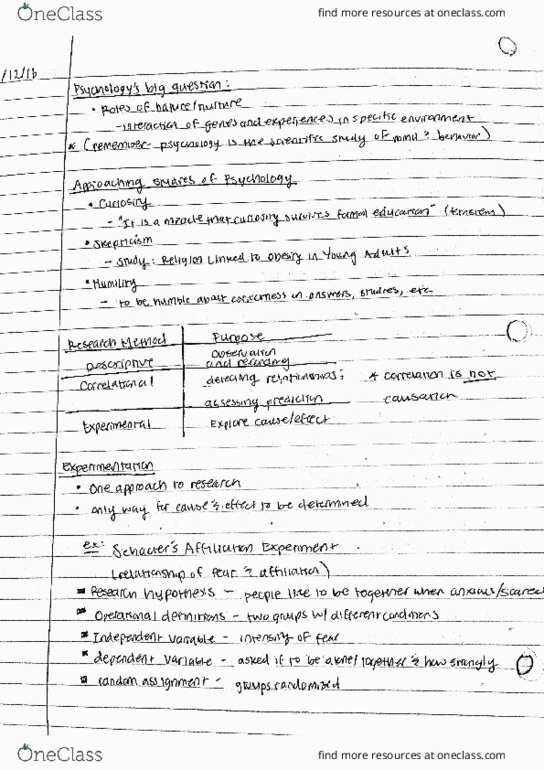 OneClass
find more resources at oneclass.com
/12/16
Psychology's big question:
• Roles of nature/nurture
- interaction of genes and experiences in specific environment
* (remember- psychology is the scientific study of mind & behavior)
Approaching studies of Psychology
• Curiosity
- "It is a miracle that curiosity survives formal education" (Einstein)
• Skepticism
- Study: Religion Linked to obesity in Young Adults
• Humility
- to be humble about correctness in answers, studies, etc.
Research Method | Purpose
Descriptive | observation and recording
Correlational | detecting relationships; * correlation is not
assessing prediction causation
Experimental | Explore cause/effect
Experimentation
• One approach to research
• only way for cause & effect to be determined
ex: Schacter's Affiliation Experiment
(relationship of fear & affiliation)
Research hypothesis - people like to be together when anxious/scared
Operational definitions - two groups w/ different conditions
Independent variable - intensity of fear
dependent variable - asked if to be alone/together & how strongly
random assignment - groups randomized
OneClass
find more resources at oneclass.com